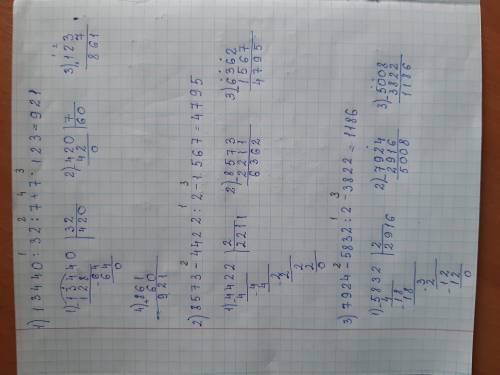 1) 13440 : 32 : 7 + 7 · 123 = 921
1 2 4 3
1) 13440 | 32
128 | 420
64
64
0
2) 420 | 7
42 | 60
0
3) 123
7
861
4) 861
60
921
2) 8573 - 4422 : 2 - 1567 = 4795
2 1 3
1) 4422 | 2
4 | 2211
4
4
2
2
2
2
0
2) 8573
2211
6362
3) 6362
1567
4795
3) 7924 - 5832 : 2 - 3822 = 1186
2 1 3
1) 5832 | 2
4 | 2916
18
18
3
2
12
12
0
2) 7924
2916
5008
3) 5008
3822
1186